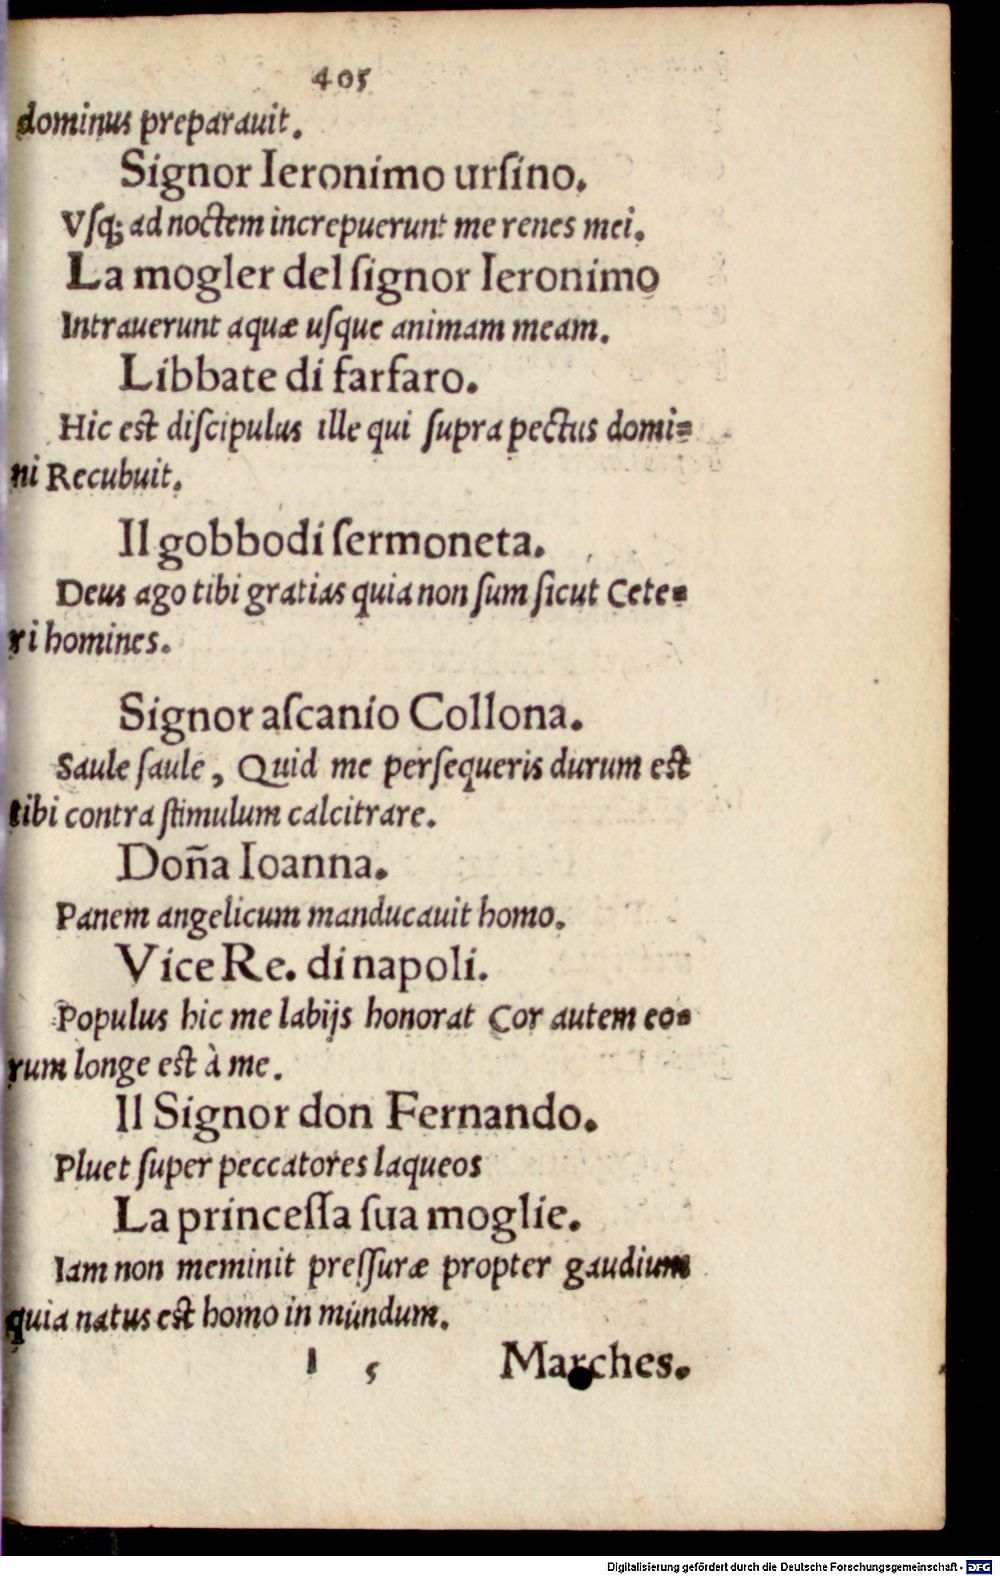 405
dominus preparauit.
Signor Ieronimo urſino.
Vſq; ad noctem increpuerunt me renes mei.
La mogler del ſignor Ieronimo
Intrauerunt aquæ uſque animam meam.
Libbate di farfaro.
Hic est diſcipulus ille qui ſupra pectus domi=
ni Recubuit.
Il gobbodi ſermoneta.
Deus ago tibi gratias quia non ſum ſicut Cete=
ri homines.
Signor aſcanio Collona.
Saule ſaule, Quid me perſequeris durum est
tibi contra ſtimulum calcitrare.
Doña Ioanna.
Panem angelicum manducauit homo.
Vice Re. di napoli.
Populus hic me labijs honorat Cor autem eo=
rum longe est à me.
Il Signor don Fernando.
Pluet ſuper peccatores laqueos
La princeſſa ſua moglie.
Iam non meminit preſſuræ propter gaudium
quia natus est homo in mundum.
I 5 Marches.
Digitalisierung gefördert durch die Deutsche Forschungsgemeinschaft - DFG